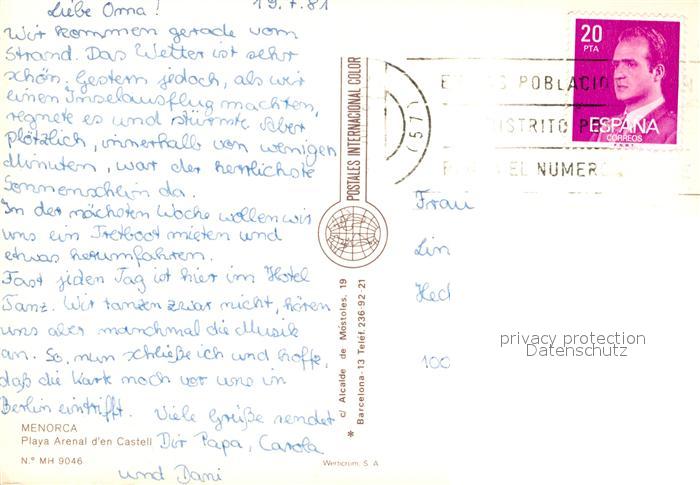 Liebe Oma! 19.7.81
Wir kommen gerade vom
Strand. Das Wetter ist sehr
schön. Gestern jedoch, als wir
einen Inselausflug machten,
regnete es und stürmte. Aber
plötzlich, innerhalb von wenigen
Minuten, war der herrlichste
Sonnenschein da.
In der nächsten Woche wollen wir
uns ein Tretboot mieten und
etwas herumfahren.
Fast jeden Tag ist hier im Hotel
Tanz. Wir tanzen zwar nicht, hören
uns aber manchmal die Musik
an. So, nun schließe ich und hoffe,
daß die Karte noch vor uns in
Berlin eintrifft. Viele Grüße sendet
Dir Papa, Carola
und Dani
MENORCA
Playa Arenal d'en Castell
N.º MH 9046
POSTALES INTERNACIONAL COLOR
c/ Alcalde de Móstoles, 19
* Barcelona-13 Teléf. 236-92-21
Wertcrom, S. A.
20
PTA
ESPAÑA
CORREOS
POBLACIO
DISTRITO P
EL NUMER
(57)
Frau
Lin
Hed
100
privacy protection
Datenschutz